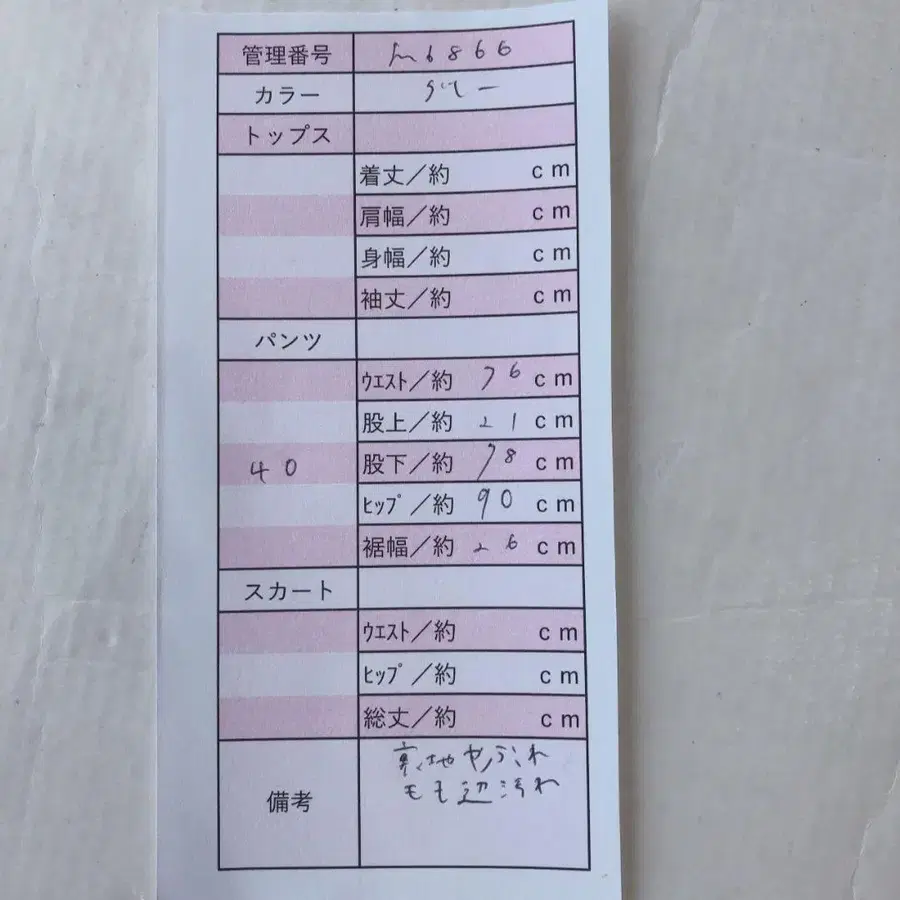 管理番号 m6866
カラー グレー
トップス
着丈／約 cm
肩幅／約 cm
身幅／約 cm
袖丈／約 cm
パンツ
ｳｴｽﾄ／約 76 cm
股上／約 21 cm
40 股下／約 78 cm
ﾋｯﾌﾟ／約 90 cm
裾幅／約 26 cm
スカート
ｳｴｽﾄ／約 cm
ﾋｯﾌﾟ／約 cm
総丈／約 cm
備考 裏地やぶれ
もも辺汚れ